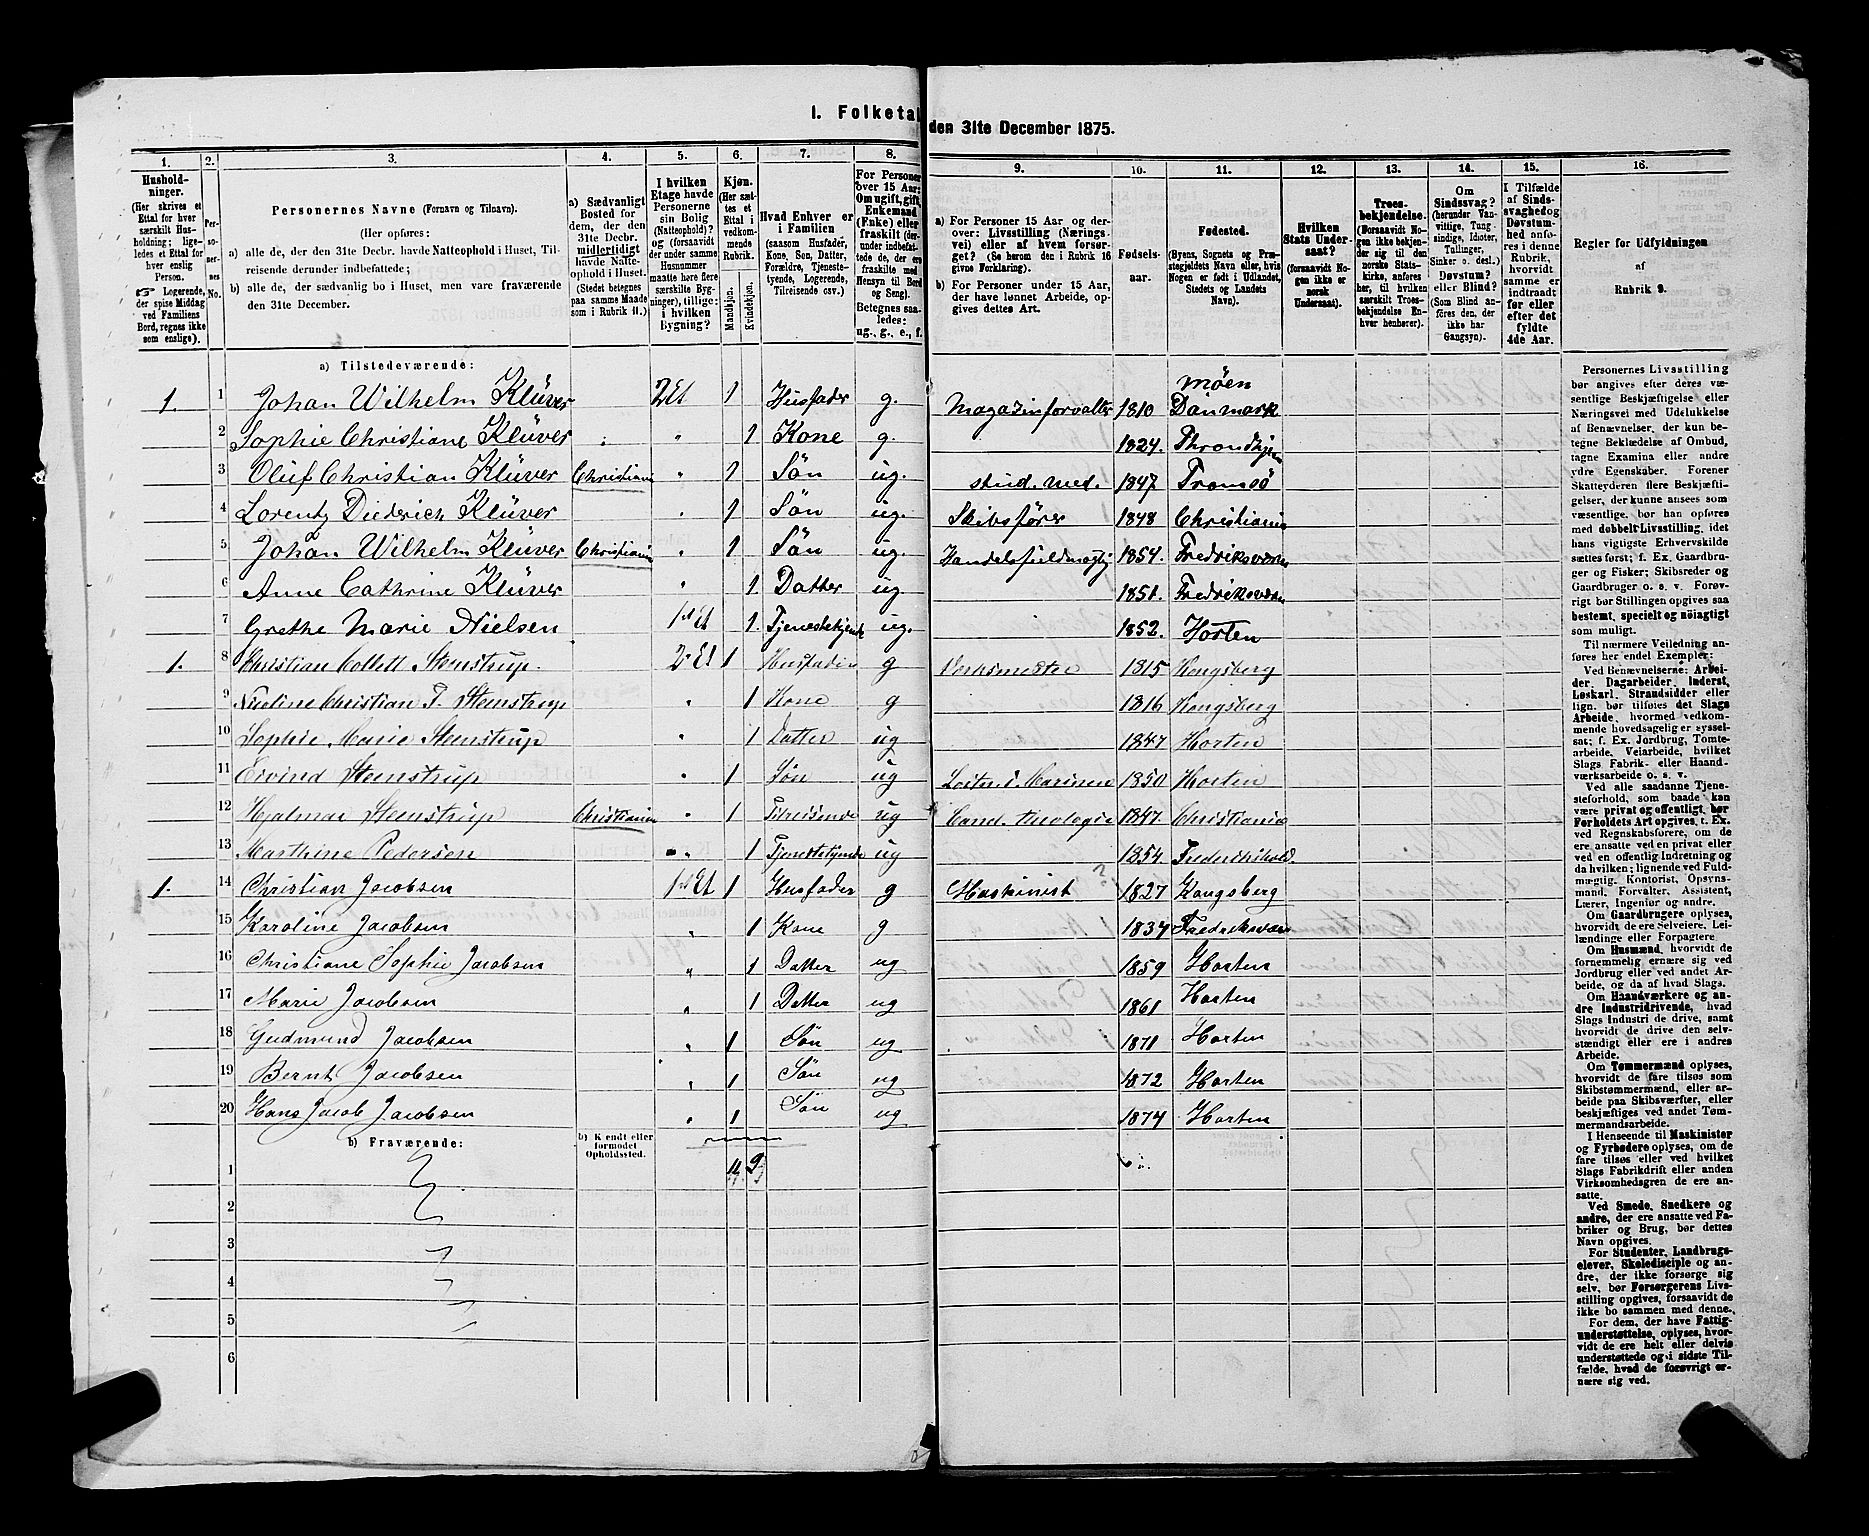 I. Folketal den 31te December 1875.
1. 2. 3. 4. 5. 6. 7. 8. 9. 10. 11. 12. 13. 14. 15. 16.
Hushold-
ninger.
(Her skrives et
Ettal for hver
særskilt Hus-
holdning; lige-
ledes et Ettal for
hver enslig
Person.
☞ Logerende,
der spise Middag
ved Familiens
Bord, regnes ikke
som enslige).
Per-
so-
ner-
nes
No.
Personernes Navne (Fornavn og Tilnavn).
(Her opføres:
a) alle de, der den 31te Decbr. havde Natteophold i Huset, Til-
reisende derunder indbefattede;
b) alle de, der sædvanlig bo i Huset, men vare fraværende
den 31te December.
a) Sædvanligt
Bosted for
dem, der den
31te Decbr.
midlertidig
havde Natte-
ophold i Huset.
(Stedet betegnes
paa samme Maade
som i Rubrik 11.)
I hvilken
Etage havde
Personerne
sin Bolig
(Natteophold)?
og (forsaavidt
der under samme
Husnummer
maatte høre flere
særskilte Byg-
ninger), tillige:
i hvilken
Bygning?
Kjøn.
(Her sæt-
tes et
Ettal i
vedkom-
mende
Rubrik.
Mandkjøn.
Kvindekjøn.
Hvad Enhver er
i Familien
(saasom Husfader,
Kone, Søn, Datter,
Forældre, Tjeneste-
tyende, Logerende,
Tilreisende osv.)
For Personer
over 15 Aar:
Om ugift, gift,
Enkemand
(Enke) eller
fraskilt (der-
under indbefat-
tede de, der ere
fraskilte med
Hensyn til Bord
og Seng).
Betegnes saa-
ledes:
ug., g., e., f.
a) For Personer 15 Aar og der-
over: Livsstilling (Nærings-
vei) eller af hvem forsør-
get? (Se herom den i Rubrik 16
givne Forklaring).
b) For Personer under 15 Aar,
der have lønnet Arbeide, op-
gives dettes Art.
Fødsels-
aar.
Fødested.
(Byens, Sognets og Præ-
stegjeldets Navn eller, hvis
Nogen er født i Udlandet,
Stedets og Landets
Navn).
Hvilken
Stats Under-
saat?
(forsaavidt No-
gen ikke er
norsk
Undersaat).
Troes-
bekjendelse.
(Forsaavidt No-
gen ikke bekjen-
der sig til den
norske Stats-
kirke, anføres
her, til hvilken
særskilt Troes-
bekjendelse En-
hver henhører).
Om
Sindssvag?
(herunder Van-
vittige, Tung-
sindige, Idioter,
Tullinger,
Sinker o. desl.)
Døvstum?
eller Blind?
(Som Blind an-
føres den, der
ikke har
Gangsyn).
I Tilfælde
af Sinds-
svaghed og
Døvstum-
hed anfø-
res i denne
Rubrik,
hvorvidt
samme er
indtraadt
før eller
efter det
fyldte
4de Aar.
Regler for Udfyldningen
af
Rubrik 9.
a) Tilstedeværende:
1. 1 Johan Wilhelm Klüver 2 Et 1 Husfader g. Magazinforvalter 1810 Möen Danmark
2 Sophie Christiane Klüver " 1 Kone g. 1824. Throndhjem
3 Oluf Christian Klüver Christiania " 1 Søn ug. stud. med. 1847 Tromsö
4 Lorentz Diederich Klüver " 1 Søn ug. Skibsfører 1848 Christiania
5 Johan Wilhelm Klüver Christiania " 1 Søn ug. Handelsfuldmægtig 1854. Fredriksværn
6 Anne Cathrine Klüver " 1 Datter ug. 1851. Fredriksværn
7 Grethe Marie Nielsen 1 Et 1. Tjenestetyende ug. 1852. Horten
1. 8 Christian Collett Steenstrup. 2 Et 1 Husfader g Verksmester 1815 Kongsberg
9 Christian F. Steenstrup " 1 Kone g 1816 Kongsberg
10 Sophie Marie Steenstrup " 1 Datter ug 1847 Horten
11 Eivind Steenstrup " 1 Søn ug Marinen 1850 Horten
12 Hjalmar Steenstrup Christiania " 1 Tilreisende ug Cand. theologie 1847 Christiania
13 Marthine Pedersen " 1 Tjenestetyende ug 1854 Frederikshald
1. 14 Christian Jacobsen 1 Et 1 Husfader g Maskinist ? 1827 Kongsberg
15 Karoline Jacobsen " 1 Kone g 1834 Fredriksværn
16 Christiane Sophie Jacobsen " 1 Datter ug 1859 Horten
17 Marie Jacobsen " 1 Datter ug 1861 Horten
18 Gudmund Jacobsen " 1 Søn ug 1871 Horten
19 Bernt Jacobsen " 1 Søn ug 1872 Horten
20 Hans Jacob Jacobsen " 1 Søn ug 1874 Horten
b) Fraværende:
b) Kjendt eller
formodet
Opholdssted.
1 11. 9
2
3
4
5
6
Personernes Livsstilling
bør angives efter deres væ-
sentlige Beskjæftigelse eller
Næringsvei med Udelukkelse
af Benævnelser, der kun be-
tegne Beklædelse af Ombud,
tagne Examina eller andre
ydre Egenskaber. Forener
Skatteyderen flere Beskjæfti-
gelser, der kunne ansees som
væsentlige, bør han opføres
med dobbelt Livsstilling, idet
hans vigtigste Erhvervskilde
sættes først; f. Ex. Gaardbru-
ger og Fisker; Skibsreder og
Gaardbruger o. s. v. Forøv-
rigt bør Stillingen opgives saa
bestemt, specielt og nöiagtigt
som muligt.
Til nærmere Veiledning an-
føres her endel Exempler:
Ved Benævnelserne: Arbei-
der, Dagarbeider, Inderst,
Løskarl, Strandsidder eller
lign. bør tilføies det Slags
Arbeide, hvormed vedkom-
mende hovedsagelig er syssel-
sat; f. Ex. Jordbrug, Tomte-
arbeide, Veiarbeide, hvilket
Slags Fabrik- eller Haand-
værksarbeide o. s. v.
Ved alle saadanne Tjene-
steforhold, som baade kan
være privat og offentligt, bør
Forholdets Art opgives, f. Ex.
ved Regnskabsførere, om de
ere ansatte ved en privat eller
ved en offentlig Indretning og
da hvilken; lignende ved Fuld-
mægtig, Kontorist, Opsyns-
mand, Forvalter, Assistent,
Lærer, Ingeniør og andre.
Om Gaardbrugere oplyses,
hvorvidt de ere Selveiere, Lei-
lændinge eller Forpagtere.
Om Husmænd, hvorvidt de
fornemmelig ernære sig ved
Jordbrug eller ved andet Ar-
beide, og da af hvad Slags.
Om Haandværkere og an-
dre Industridrivende, hvad
Slags Industri de drive, samt
hvorvidt de drive den selv-
stændigt eller ere i andres
Arbeide.
Om Tømmermænd oplyses,
hvorvidt de fare tilsøs som
Skibstømmermænd, eller ar-
beide paa Skibsværfter, eller
beskjæftiges ved andet Tøm-
mermandsarbeide.
I Henseende til Maskinister
og Fyrbødere oplyses, om de
fare tilsøs eller ved hvilket
Slags Fabrikdrift eller anden
Virksomhedsgren de ere an-
satte.
Ved Smede, Snedkere og
andre, der ere ansatte ved Fa-
briker og Brug, bør dettes
Navn opgives.
For Studenter, Landbrugs-
elever, Skoledisciple og an-
dre, der ikke forsørge sig
selv, bør Forsørgerens Livs-
stilling opgives, forsaavidt de
ikke bo sammen med denne.
For dem, der have Fattig-
understøttelse, oplyses, hvor-
vidt de ere helt eller delvis
understøttede og i sidste Til-
fælde, hvad de forøvrigt er-
nære sig ved.